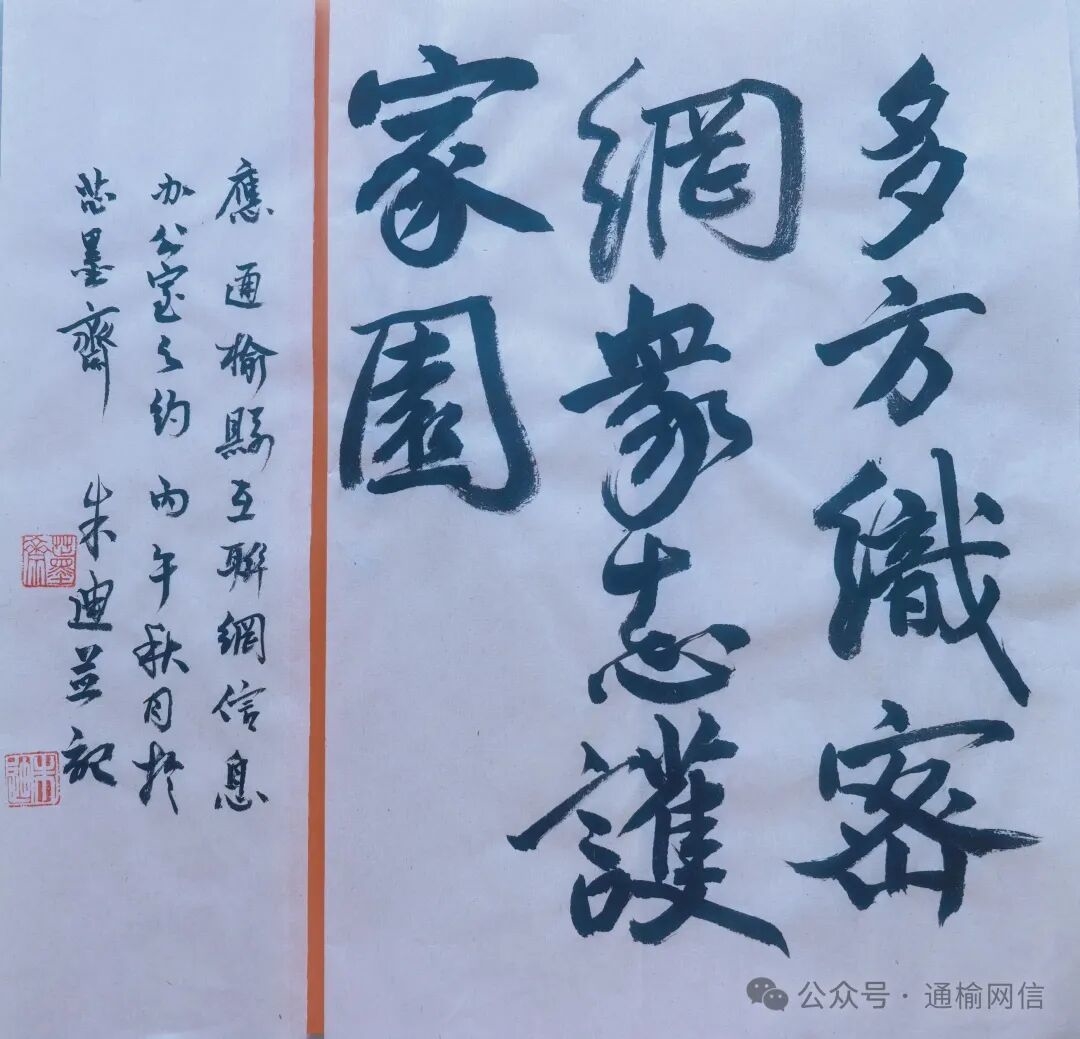 多方織密
網衆志護
家園
應通榆縣互聯網信息
办公室之约丙午秋月於
芯墨齋 朱迪並記
公众号 · 通榆网信